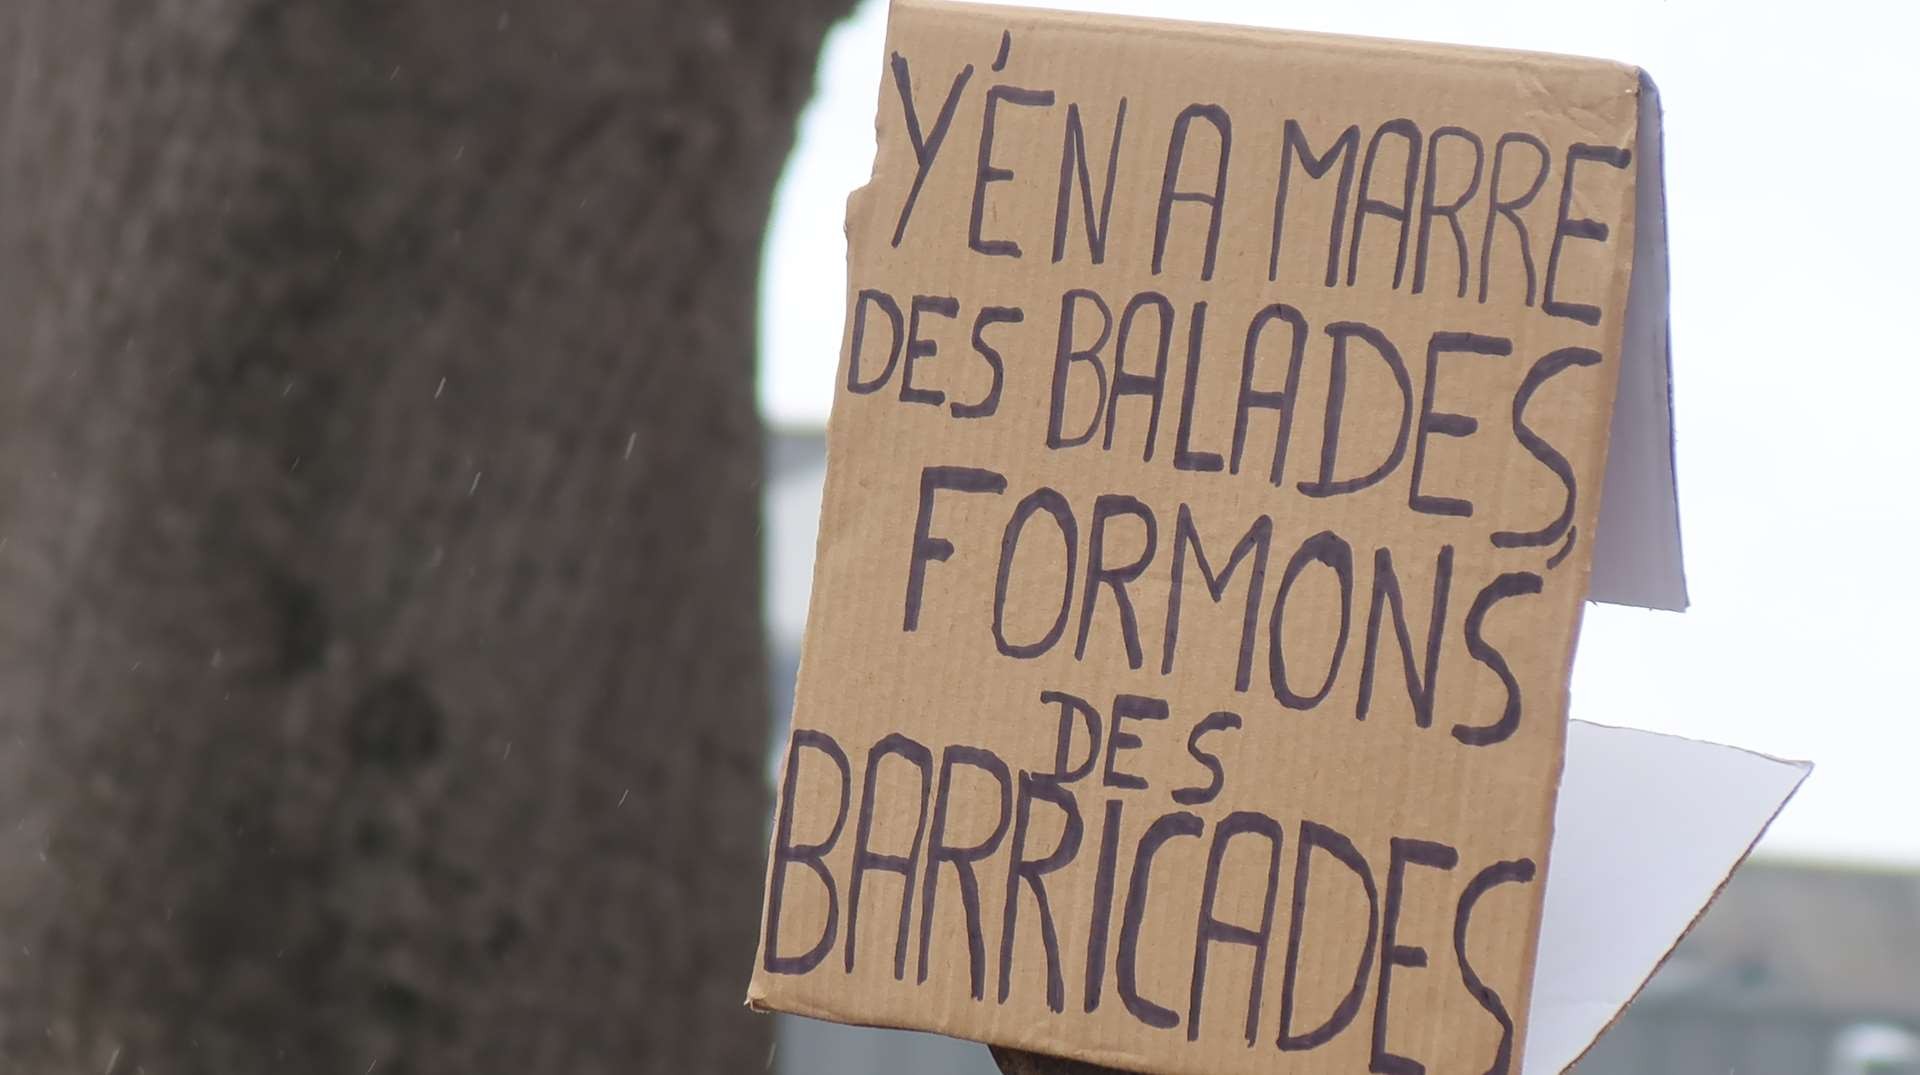 Y'ÉN A MARRE
DES BALADES,
FORMONS
DES
BARRICADES